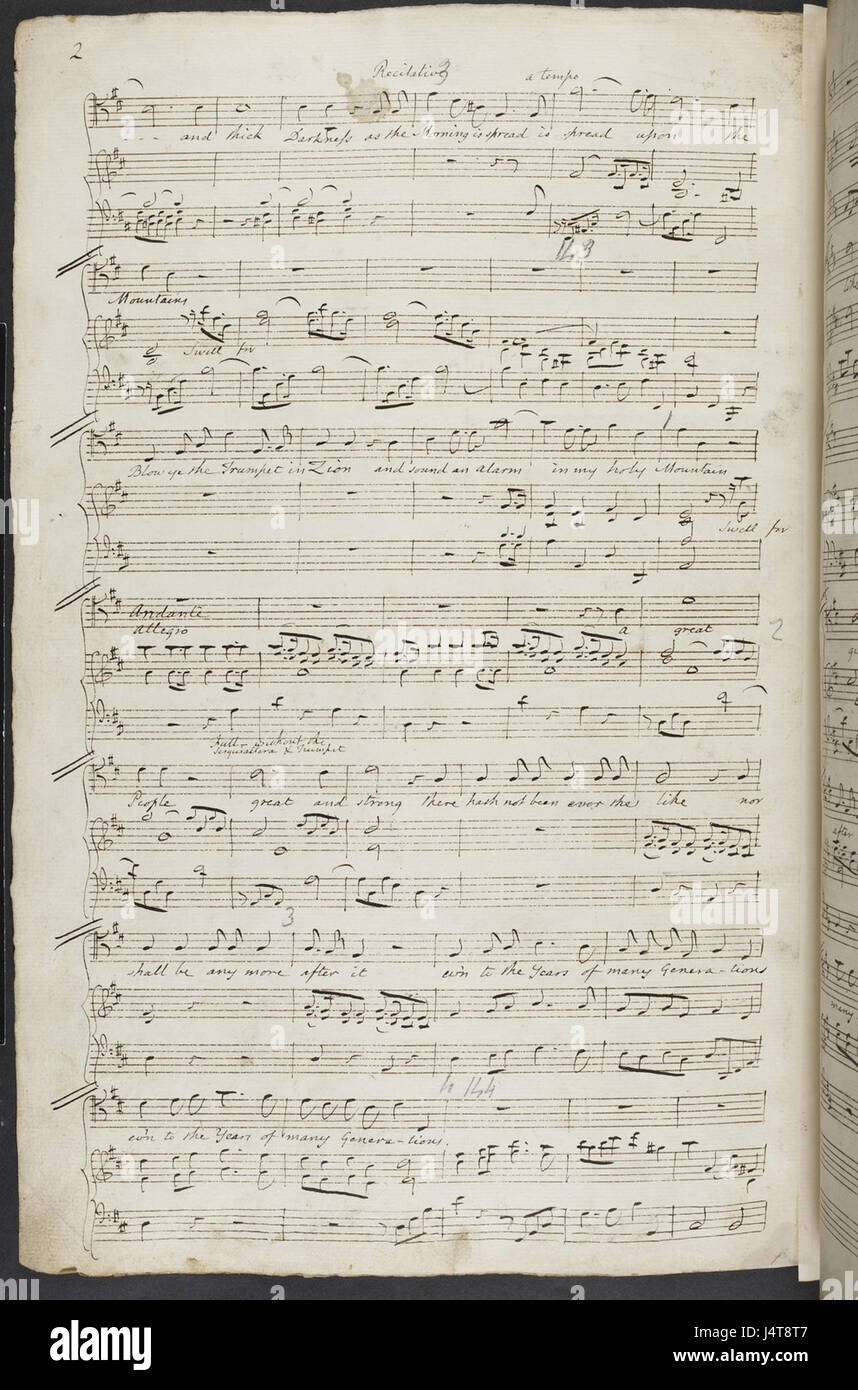 2
Recitative
a tempo
and thick Darkneſs as the Morning is spread is spread upon the
143
Mountains
Swell
Blow ye the Trumpet in Zion and sound an alarm in my holy Mountain
Swell
Andante
allegro
a great
2
Full without the
Sesquialtera & Trumpet
People great and strong there hath not been ever the like nor
3
shall be any more after it ev'n to the Years of many Genera-tions
144
ev'n to the Years of many Genera-tions.
after
many
alamy
alamy stock photo
J4T8T7
www.alamy.com